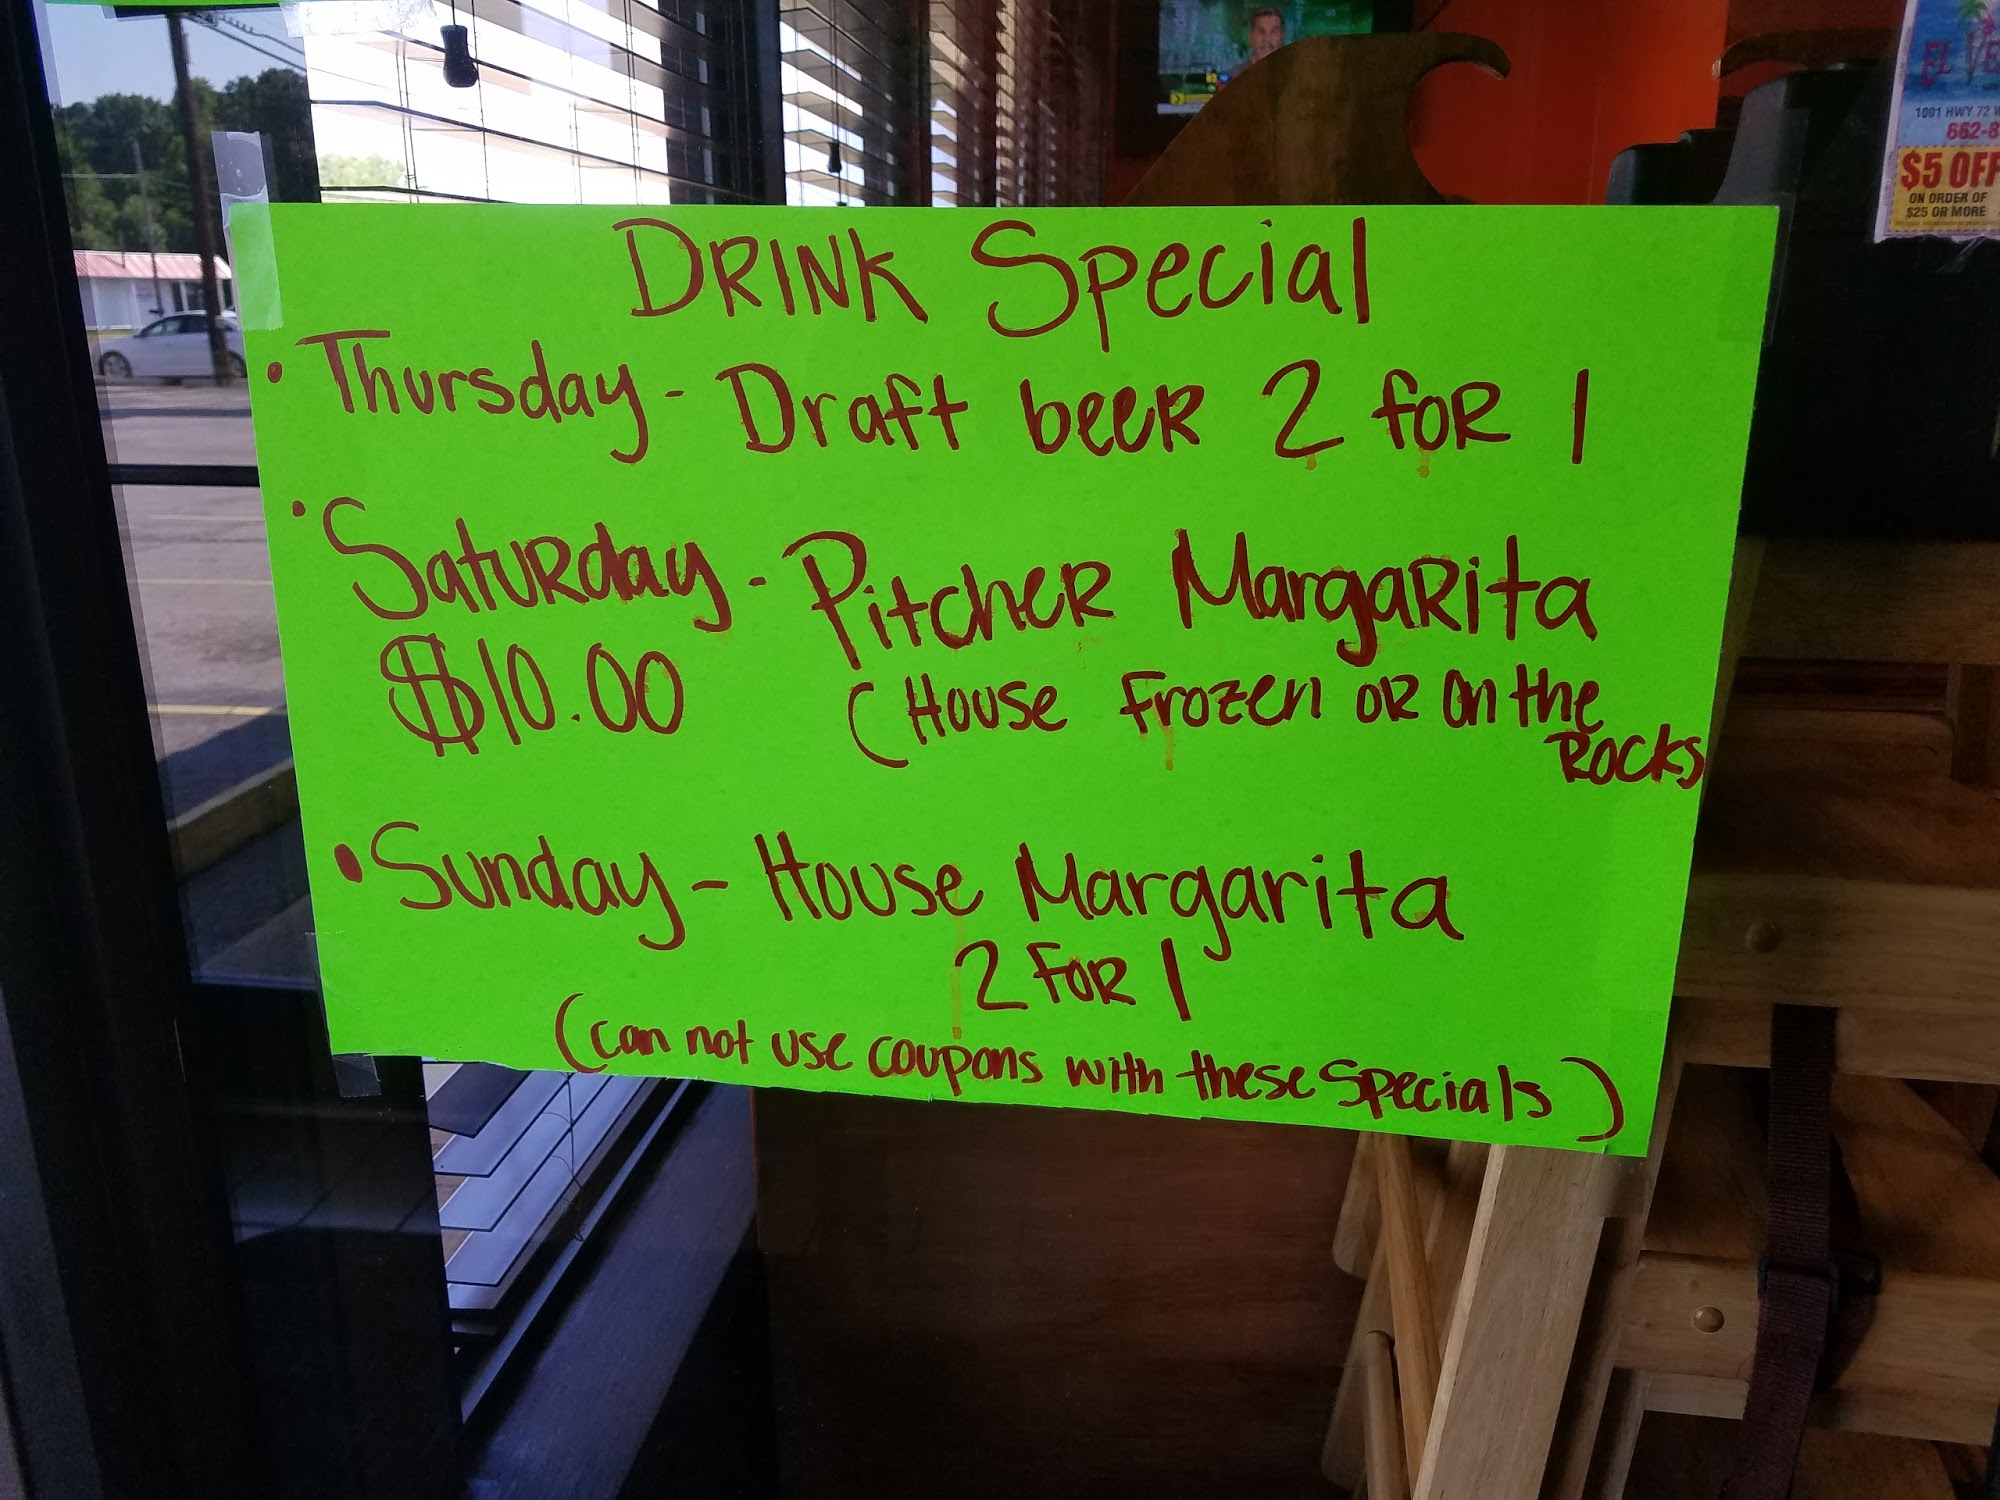 DRINK Special
• Thursday - Draft beer 2 for 1
• Saturday - Pitcher Margarita
$10.00 (House Frozen or on the
Rocks
• Sunday - House Margarita
2 for 1
(can not use coupons with these specials)
EL
1001 HWY 72 W
662-8
$5 OFF
ON ORDER OF
$25 OR MORE